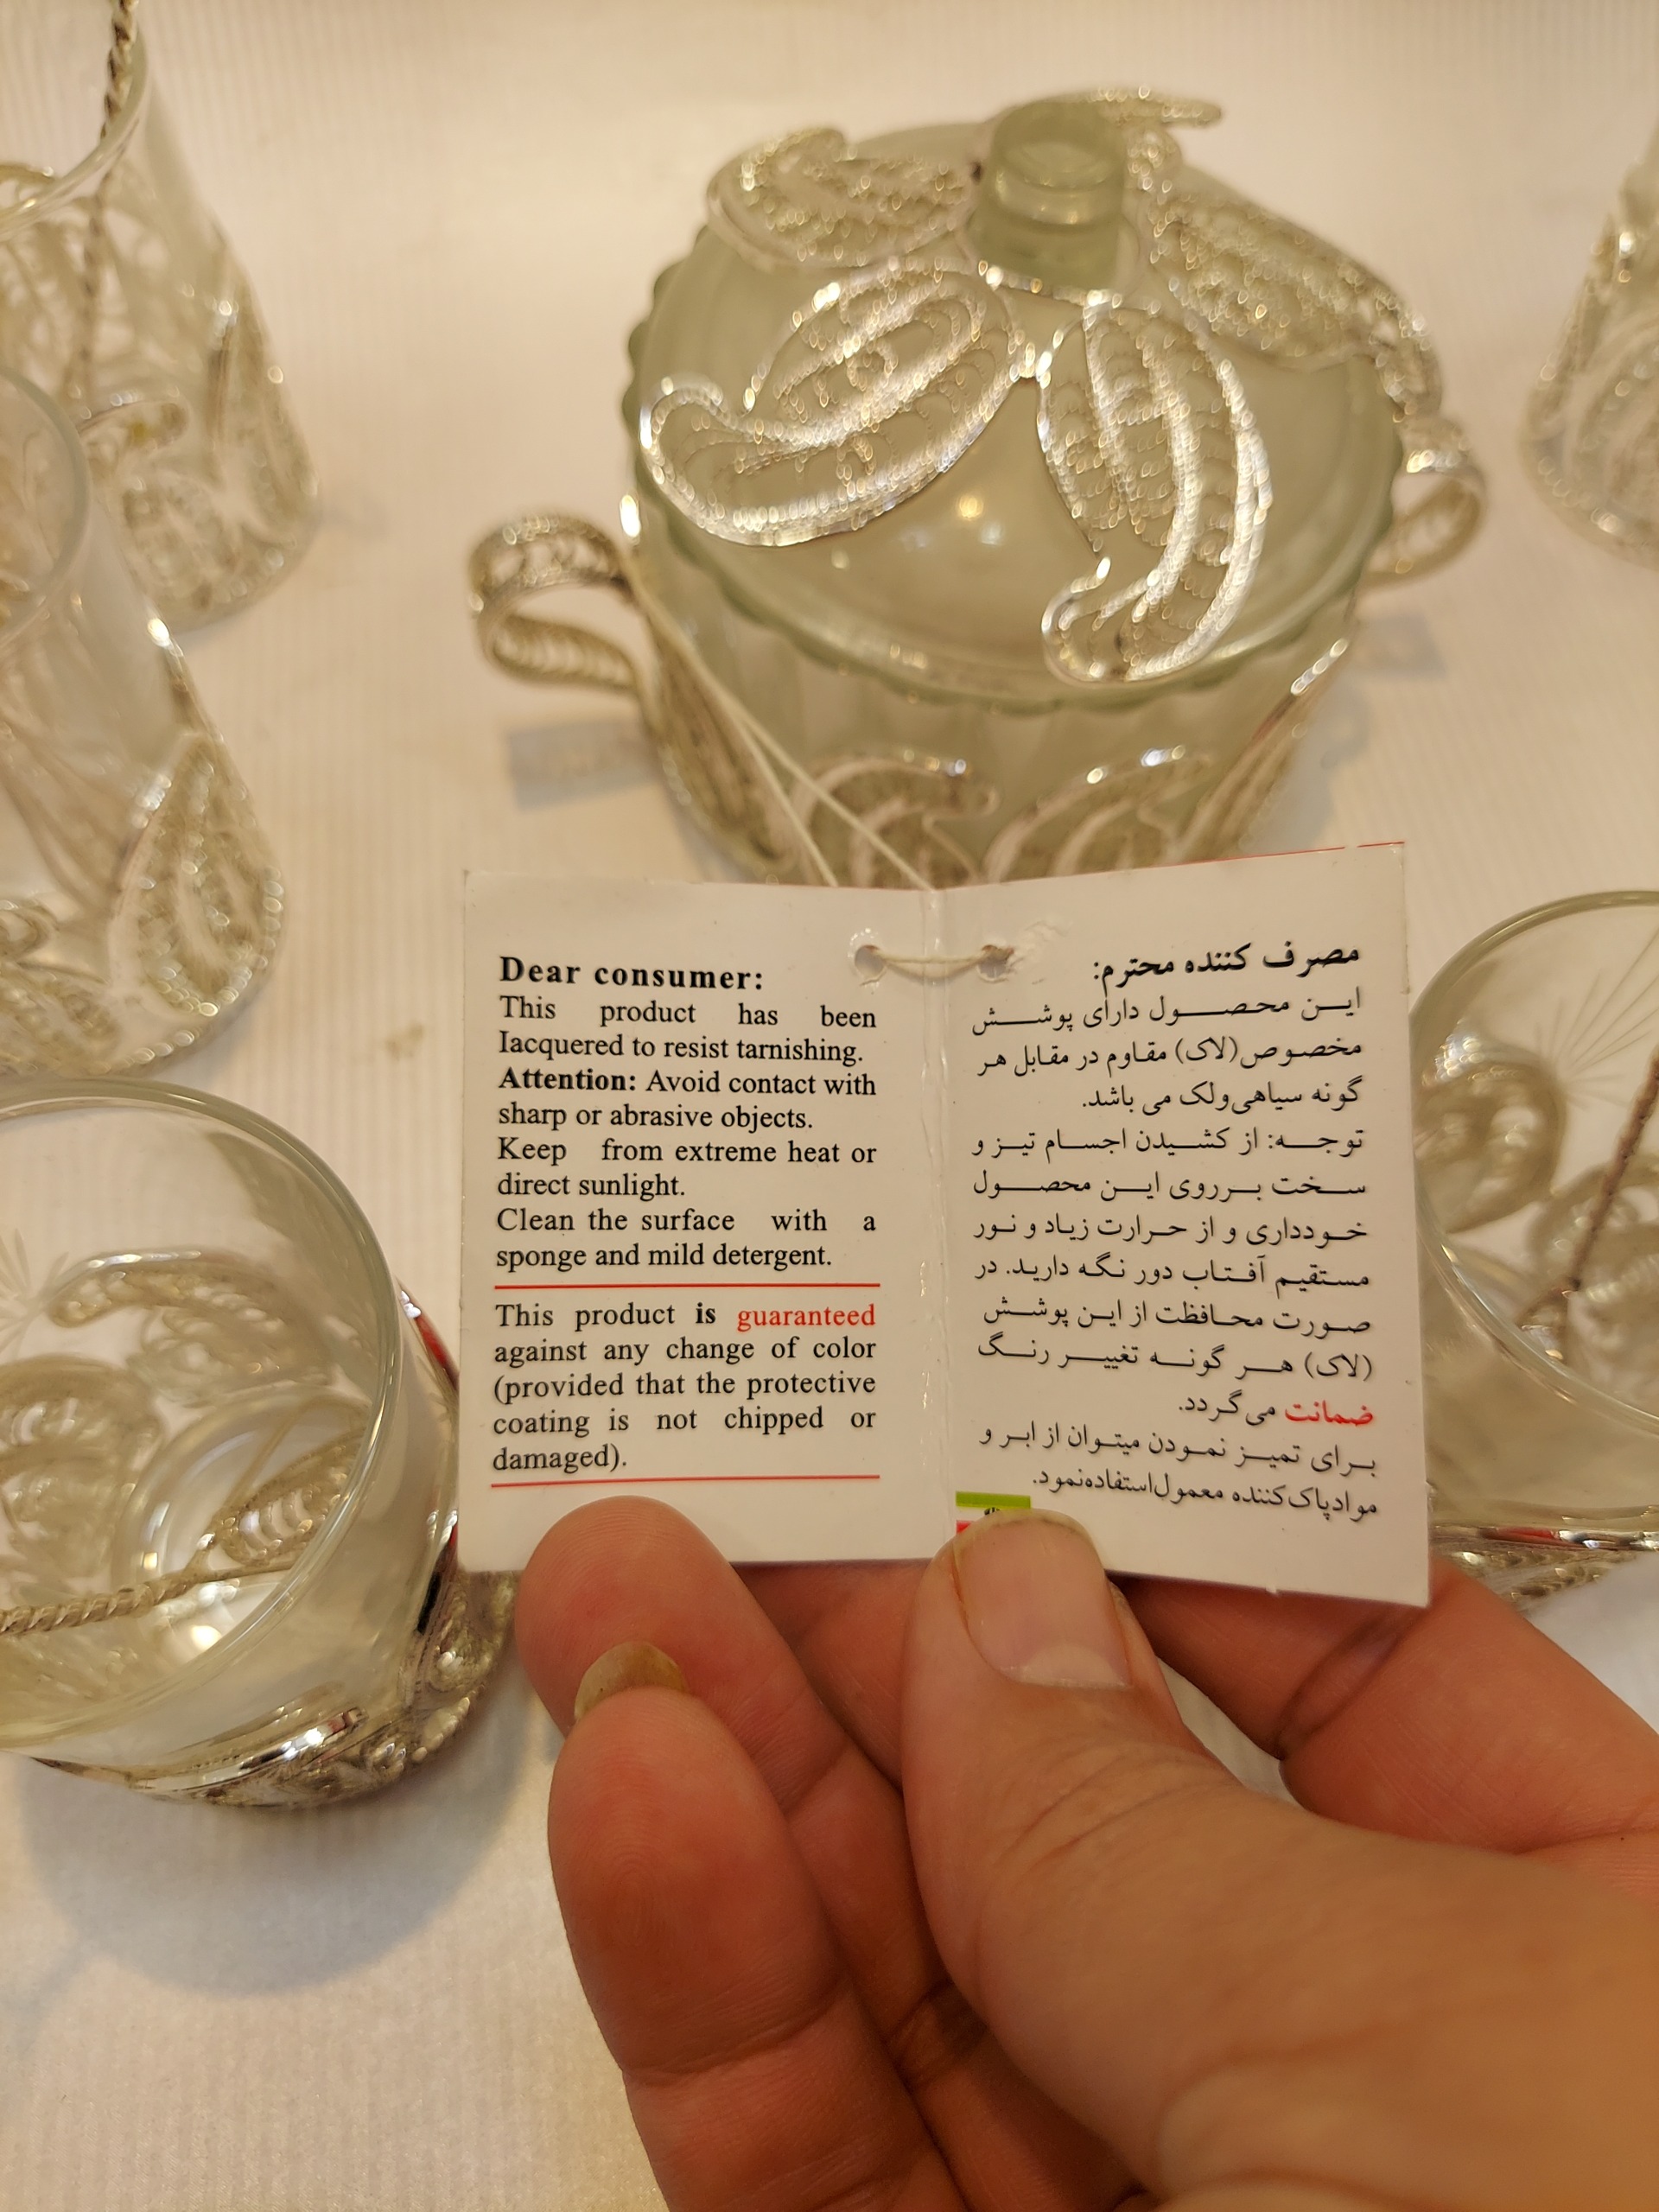 Dear consumer:
This product has been
Iacquered to resist tarnishing.
Attention: Avoid contact with
sharp or abrasive objects.
Keep from extreme heat or
direct sunlight.
Clean the surface with a
sponge and mild detergent.
This product is guaranteed
against any change of color
(provided that the protective
coating is not chipped or
damaged).
مصرف کننده محترم:
ایـن محصـول دارای پوشـش
مخصوص(لاک) مقاوم در مقابل هر
گونه سیاهی‌ولک می باشد.
توجـه: از کشـیدن اجسـام تیـز و
سـخت بـرروی ایـن محصـول
خـودداری و از حـرارت زیـاد و نـور
مستقیم آفـتـاب دور نگـه داریـد. در
صـورت محـافظت از ایـن پوشـش
(لاک) هـر گونـه تغییـر رنـگ
ضمانت می‌گـردد.
بـرای تمیـز نمـودن میتـوان از ابـر و
موادپاک‌کننده معمول‌استفاده‌نمود.